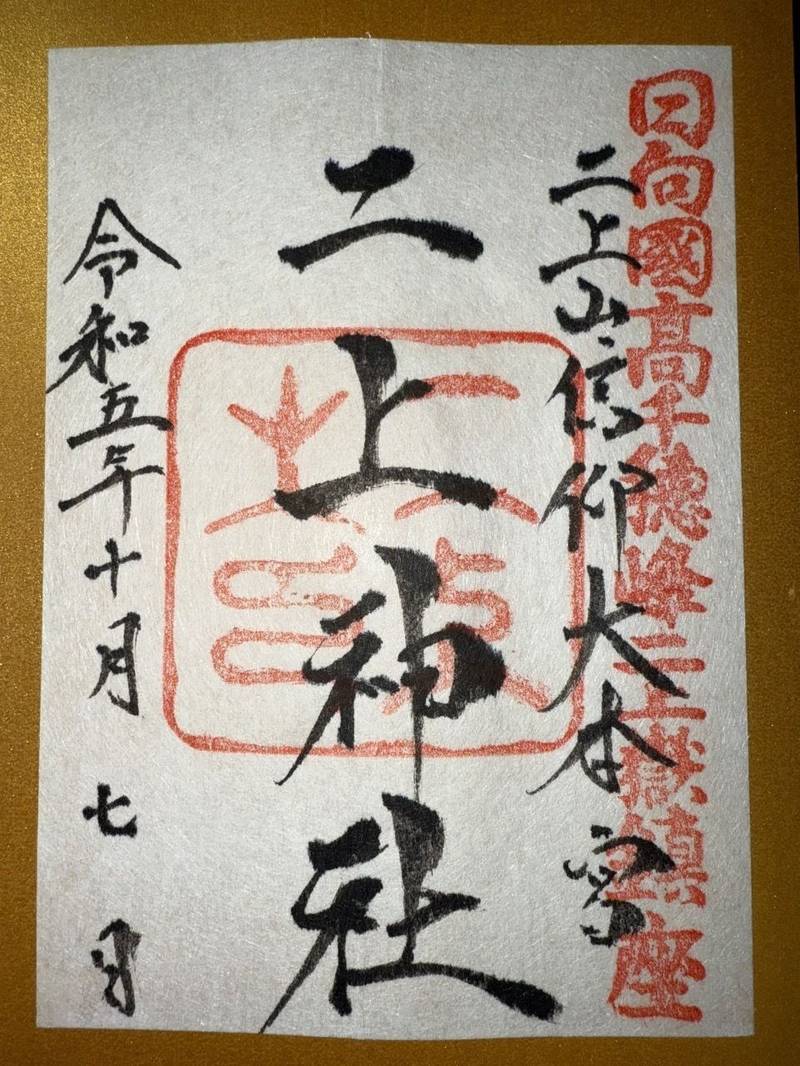 日向國高千穂峰二上嶽鎮座
二上山信仰大本宮
二上神社
令和五年十月七日